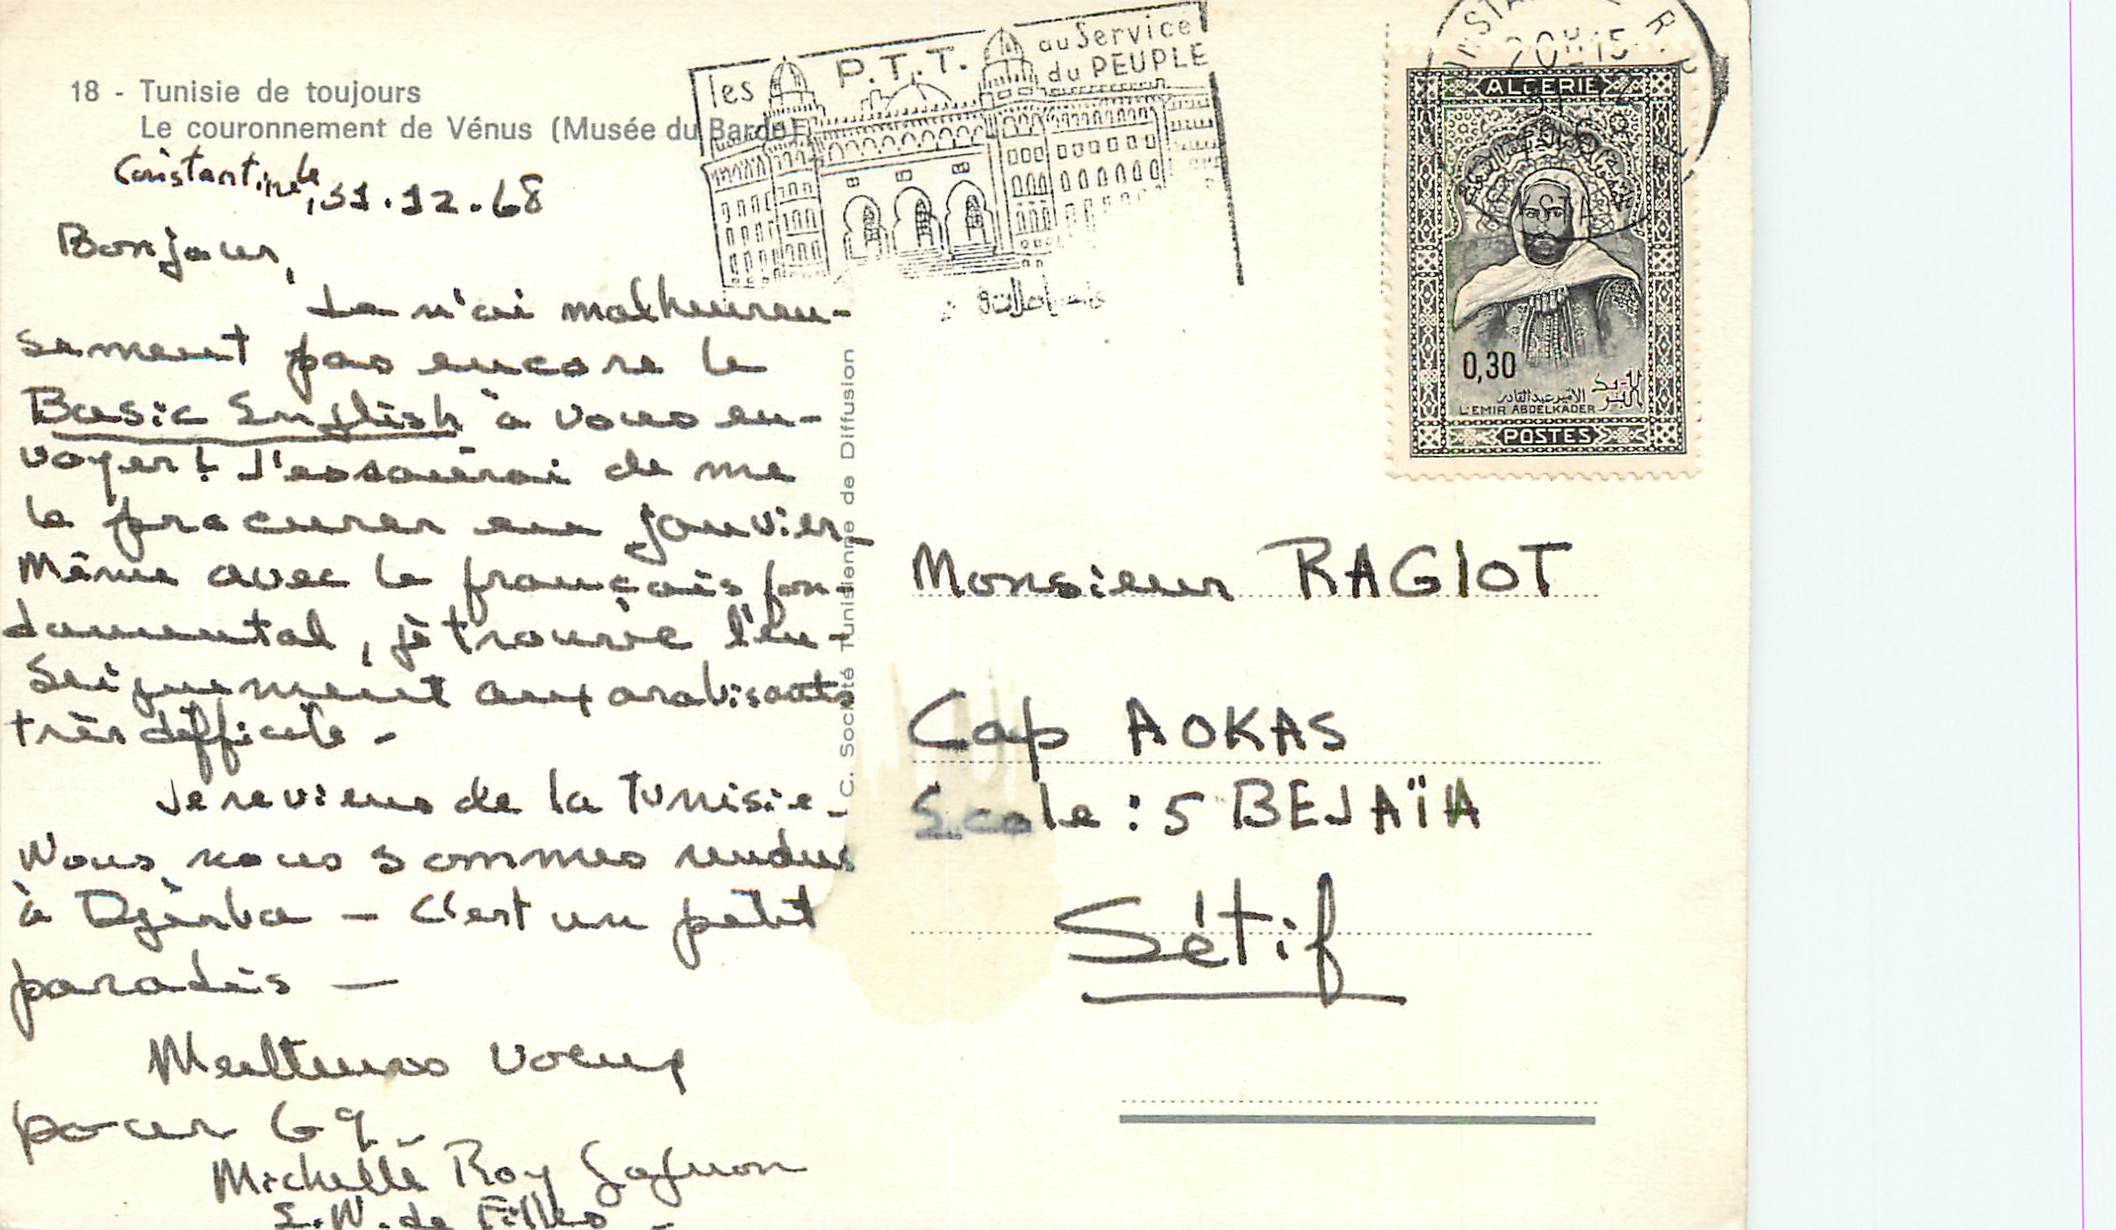 18 - Tunisie de toujours
Le couronnement de Vénus (Musée du Bardo)
Constantine, le 31.12.68
Bonjour,
Je n'ai malheureu-
sement pas encore le
Basic English à vous en-
voyer ! J'essaierai de me
le procurer en janvier_
Même avec le français fon-
damental, je trouve l'en-
seignement aux arabisants
très difficile -
Je reviens de la Tunisie_
Nous nous sommes rendus
à Djerba - C'est un petit
paradis -
Meilleurs voeux
pour 69_
Michelle Roy
E.N. de Filles -
C. Société Tunisienne de Diffusion
les P.T.T. au Service
du PEUPLE
20H15
ALGERIE
0,30
الأمير عبد القادر
البريد
L'EMIR ABDELKADER
POSTES
Monsieur RAGIOT
Cap AOKAS
Ecole : 5 BEJAÏA
Sétif